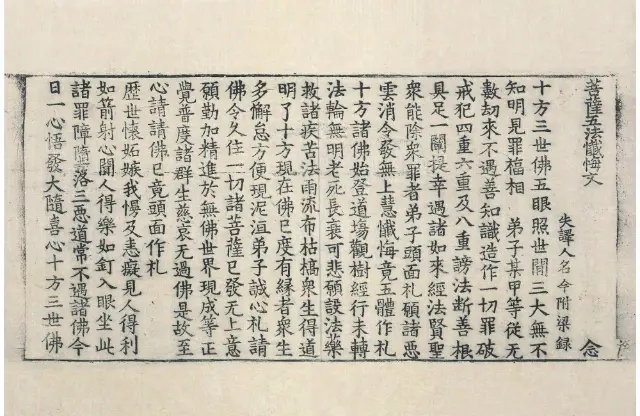 菩薩五法懺悔文
失譯人名今附梁録 念
十方三世佛五眼照世間三大無不
知明見罪福相 弟子某甲等從无
數劫來不遇善知識造作一切罪破
戒犯四重六重及八重謗法斷善根
具足一闡提幸遇諸如來經法賢聖
衆能除衆罪者弟子頭面札願諸惡
雲消令發無上慧懺悔竟五體作札
十方諸佛始登道場觀樹經行未轉
法輪無明老死長衰可悲願設法樂
救諸疾苦法雨流布枯槁衆生得道
明了十方現在佛已度有緣者衆生
多懈怠方便現泥洹弟子誠心札請
佛令久住一切諸菩薩已發无上意
願勤加精進於無佛世界現成等正
覺普度諸群生慈哀无過佛是故至
心請請佛已竟頭面作札
歷世懷妬嫉我慢及恚癡見人得利
如箭射心聞人得樂如釘入眼坐此
諸罪障墮落三惡道常不遇諸佛今
日一心悟發大隨喜心十方三世佛